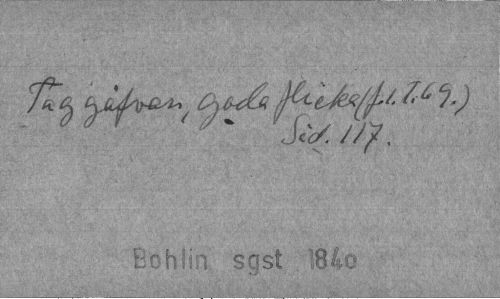 Tag gåfvan, goda flicka (f. 1. T. 69.)
Sid. 117.
Bohlin sgst 1840